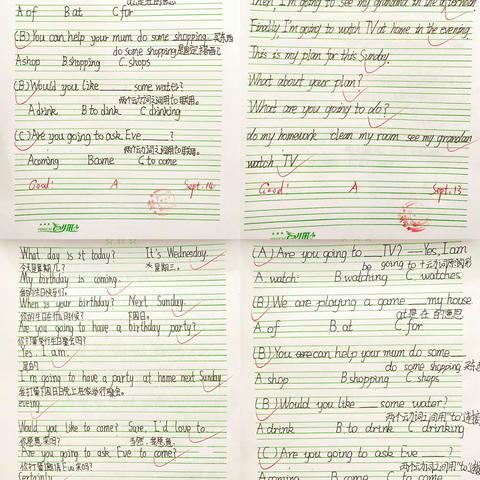 A of B at C for
(B) You can help your mum do some shopping
do some shopping
A shop B shopping C. shops
(B) Would you like ___ some water?
两个动词之间用to联用。
A drink B to dink C drinking
(C) Are you going to ask Eve ___?
两个动词之间用to联用。
A coming B come C to come
Good! A Sept. 14
Then, I'm going to see my grandma in the afternoon.
Finally, I'm going to watch TV at home in the evening.
This is my plan for this Sunday.
What about your plan?
What are you going to do?
do my homework clean my room see my grandan
watch TV
Good! A Sept. 13
What day is it today? It's Wednesday.
今天是星期几? 星期三。
My birthday is coming.
我的生日快到了。
When is your birthday? Next Sunday.
你的生日在什么时候? 下周日。
Are you going to have a birthday party?
你打算举行生日聚会吗?
Yes, I am.
是的
I'm going to have a party at home next Sunday
我打算下周日晚上在家举行聚会。
Would you like to come? Sure, I'd love to.
你愿意来吗? 当然,我愿意。
Are you going to ask Eve to come?
你打算邀请Eve来吗?
Certainly
(A) Are you going to ___ TV? —Yes, I am
be going to +动词原形
A. watch B watching C. watches
(B) We are playing a game ___ my house
at是在 的意思
A. of B. at C. for
(B) You can help your mum do some ___
do some shopping
A shop B shopping C. shops
(B) Would you like ___ some water?
两个动词之间用"to"连接
A drink B to drink C drinking
(C) Are you going to ask Eve ___?
两个动词之间用"to"连接
A coming B come C to come